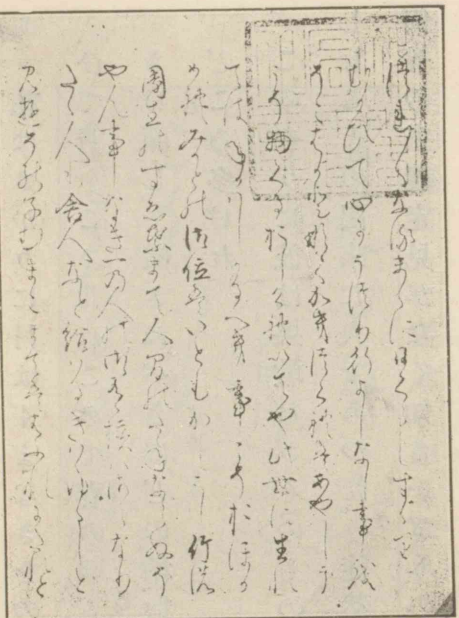 つれ〳〵なるまゝに日くらしすゝりに
むかひて心にうつり行よしなし事を
そこはかとなくかきつくれはあやしう
こそ物くるおしけれいてや此世に生れ
てはねかはしかるへき事こそおほか
めれみかとの御位はいともかしこし竹の
園生のすゑ葉まて人間のたねならぬそ
やん事なき一の人の御有様はさらなり
たゝ人も舎人なと給はるきははゆゝしと
見ゆその子むまこまてははふれにたれと